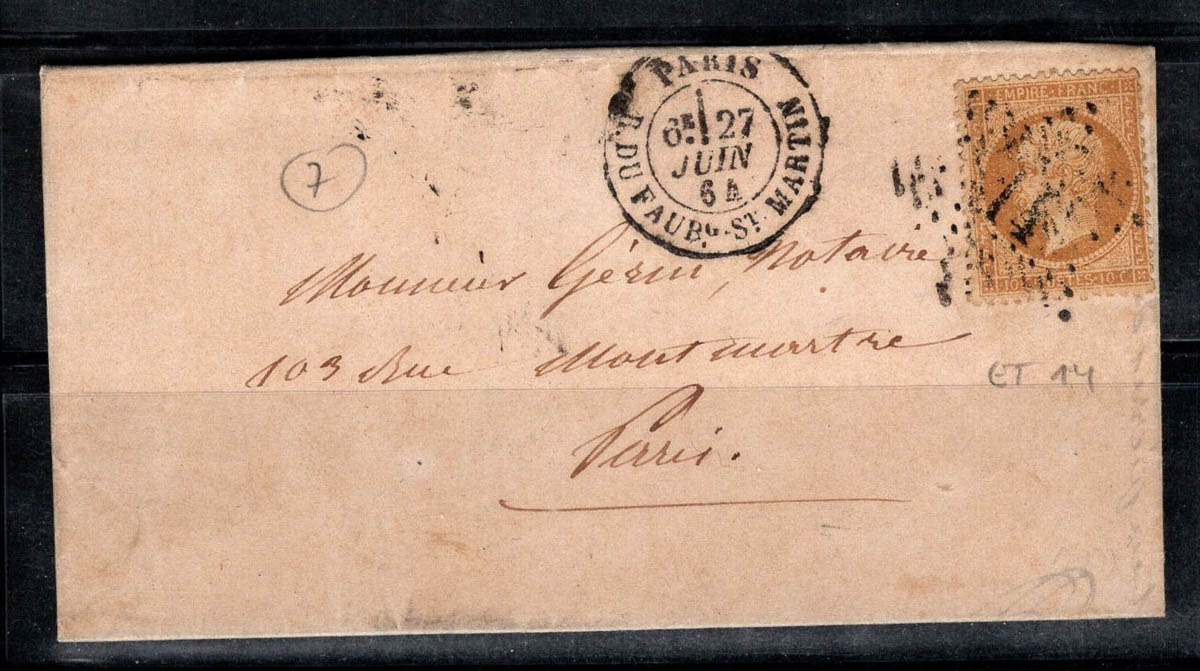 PARIS
6E 27
JUIN
64
R. DU FAUBG. ST. MARTIN
EMPIRE FRANC
10 C.
7
Monsieur Gérin, Notaire
103 Rue Montmartre
Paris.
ET 14